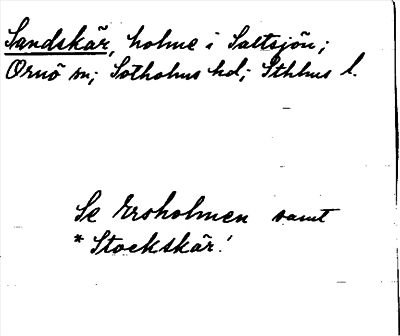 Sandskär, holme i Saltsjön;
Ornö sn; Sotholms hd; Sthlms l.
Se Ersholmen samt
* Stockskär!